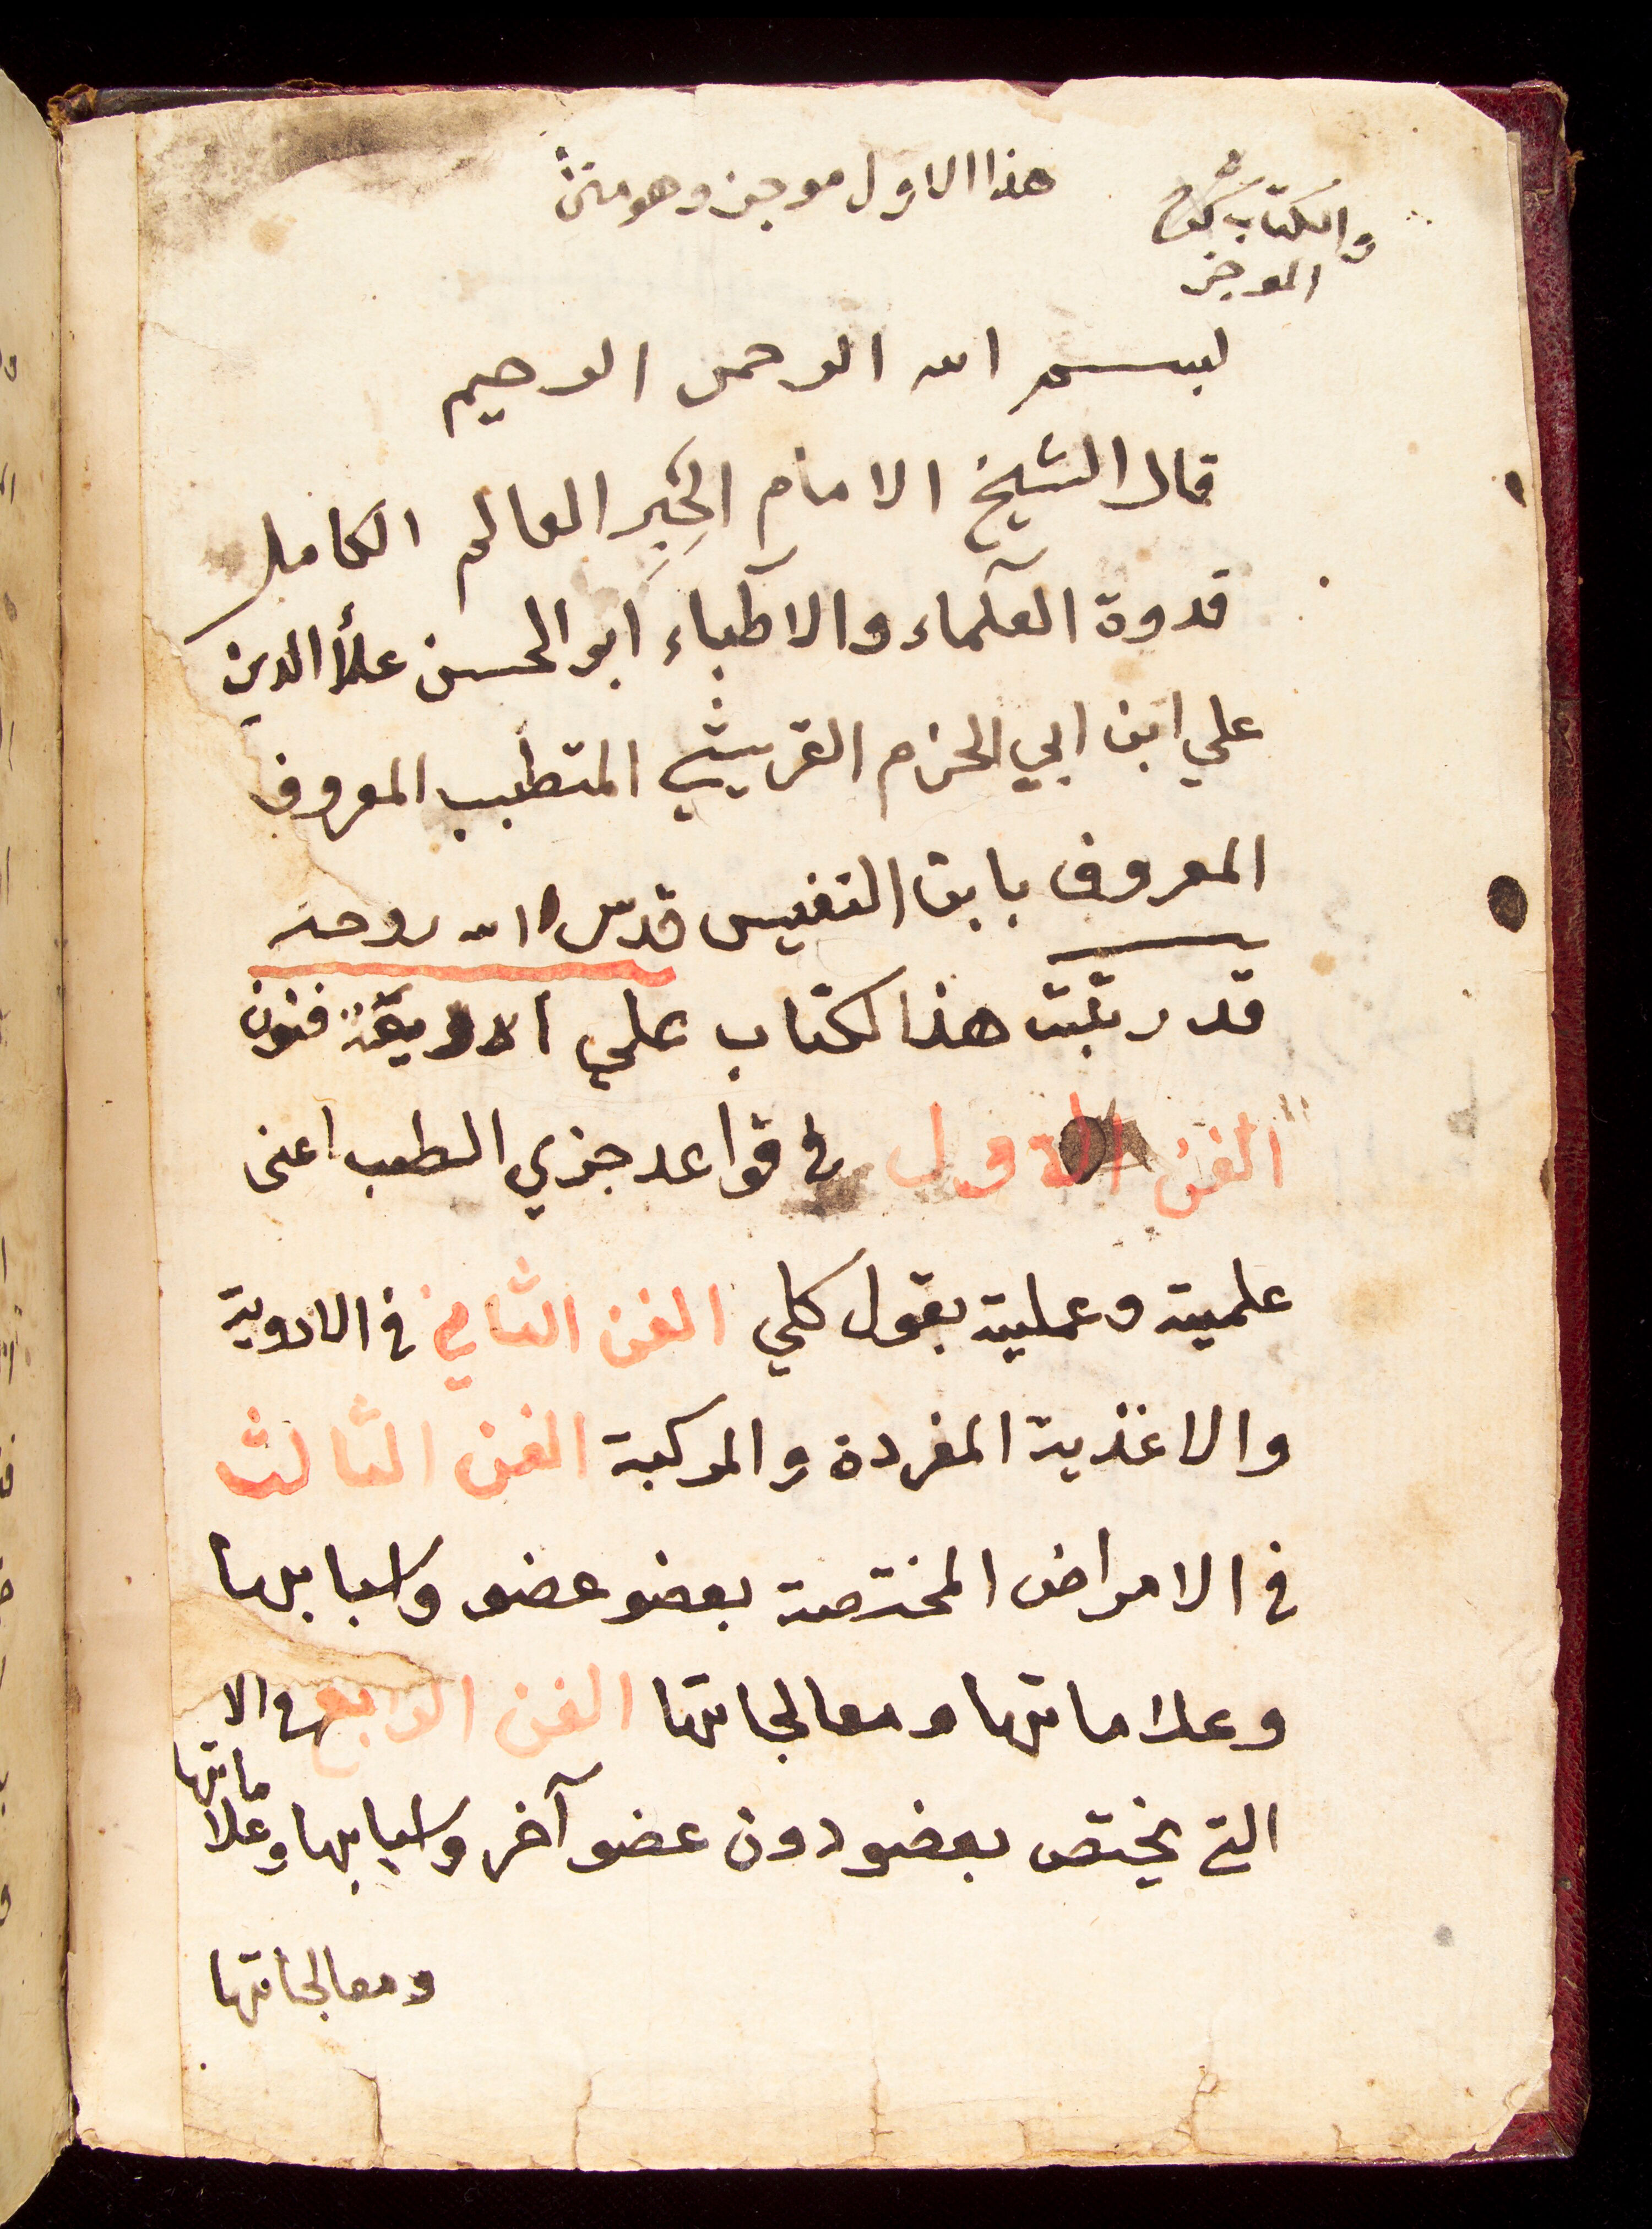 هذا الاول موجز وهو متن
والكتاب
الموجز
بسم الله الرحمن الرحيم
قال الشيخ الامام الحَبِر العالم الكامل
قدوة العلماء والاطباء ابو الحسن علأ الدين
علي ابن ابي الحزم القريشي المتطبب المعروف
المعروف بابن النفيس قدس الله روحه
قد رتبت هذا لكتاب علي فنون
الفن الاول في قواعد جزي الطب اعنى
علمية وعملية بقول كلي الفن الثاني في الادوية
والاغذية المفردة والمركبة الفن الثالث
في الامراض المختصة بعضو عضو واسبابها
وعلاماتها ومعالجاتها الفن الرابع في الا
التي يختص بعضو دون عضو آخر واسبابها وعلا
ماتها
ومعالجاتها